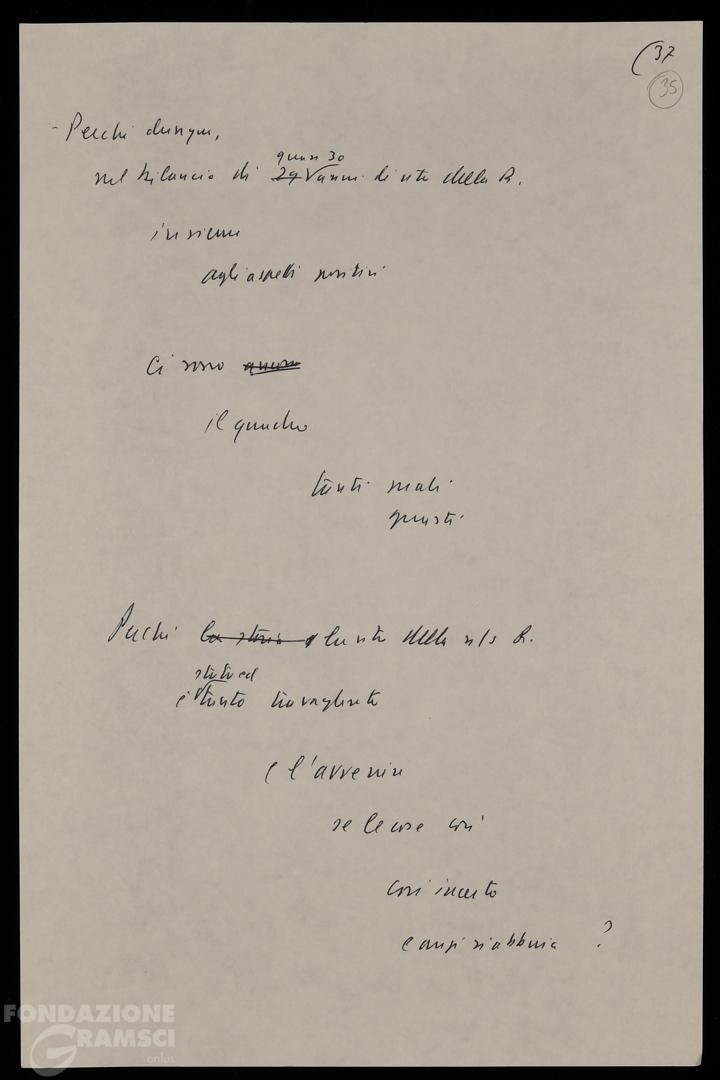 (37
35
- Perché dunque,
quasi 30
nel bilancio di 29 anni di vita della R.
insieme
agli aspetti positivi
ci sono ancora
il quadro
tanti mali
guasti
Perché la storia e la vita della n/s R.
stata ed
è tanto travagliata
e l'avvenire
se le cose così
così incerto
e anzi si abbuia ?
FONDAZIONE
GRAMSCI
onlus